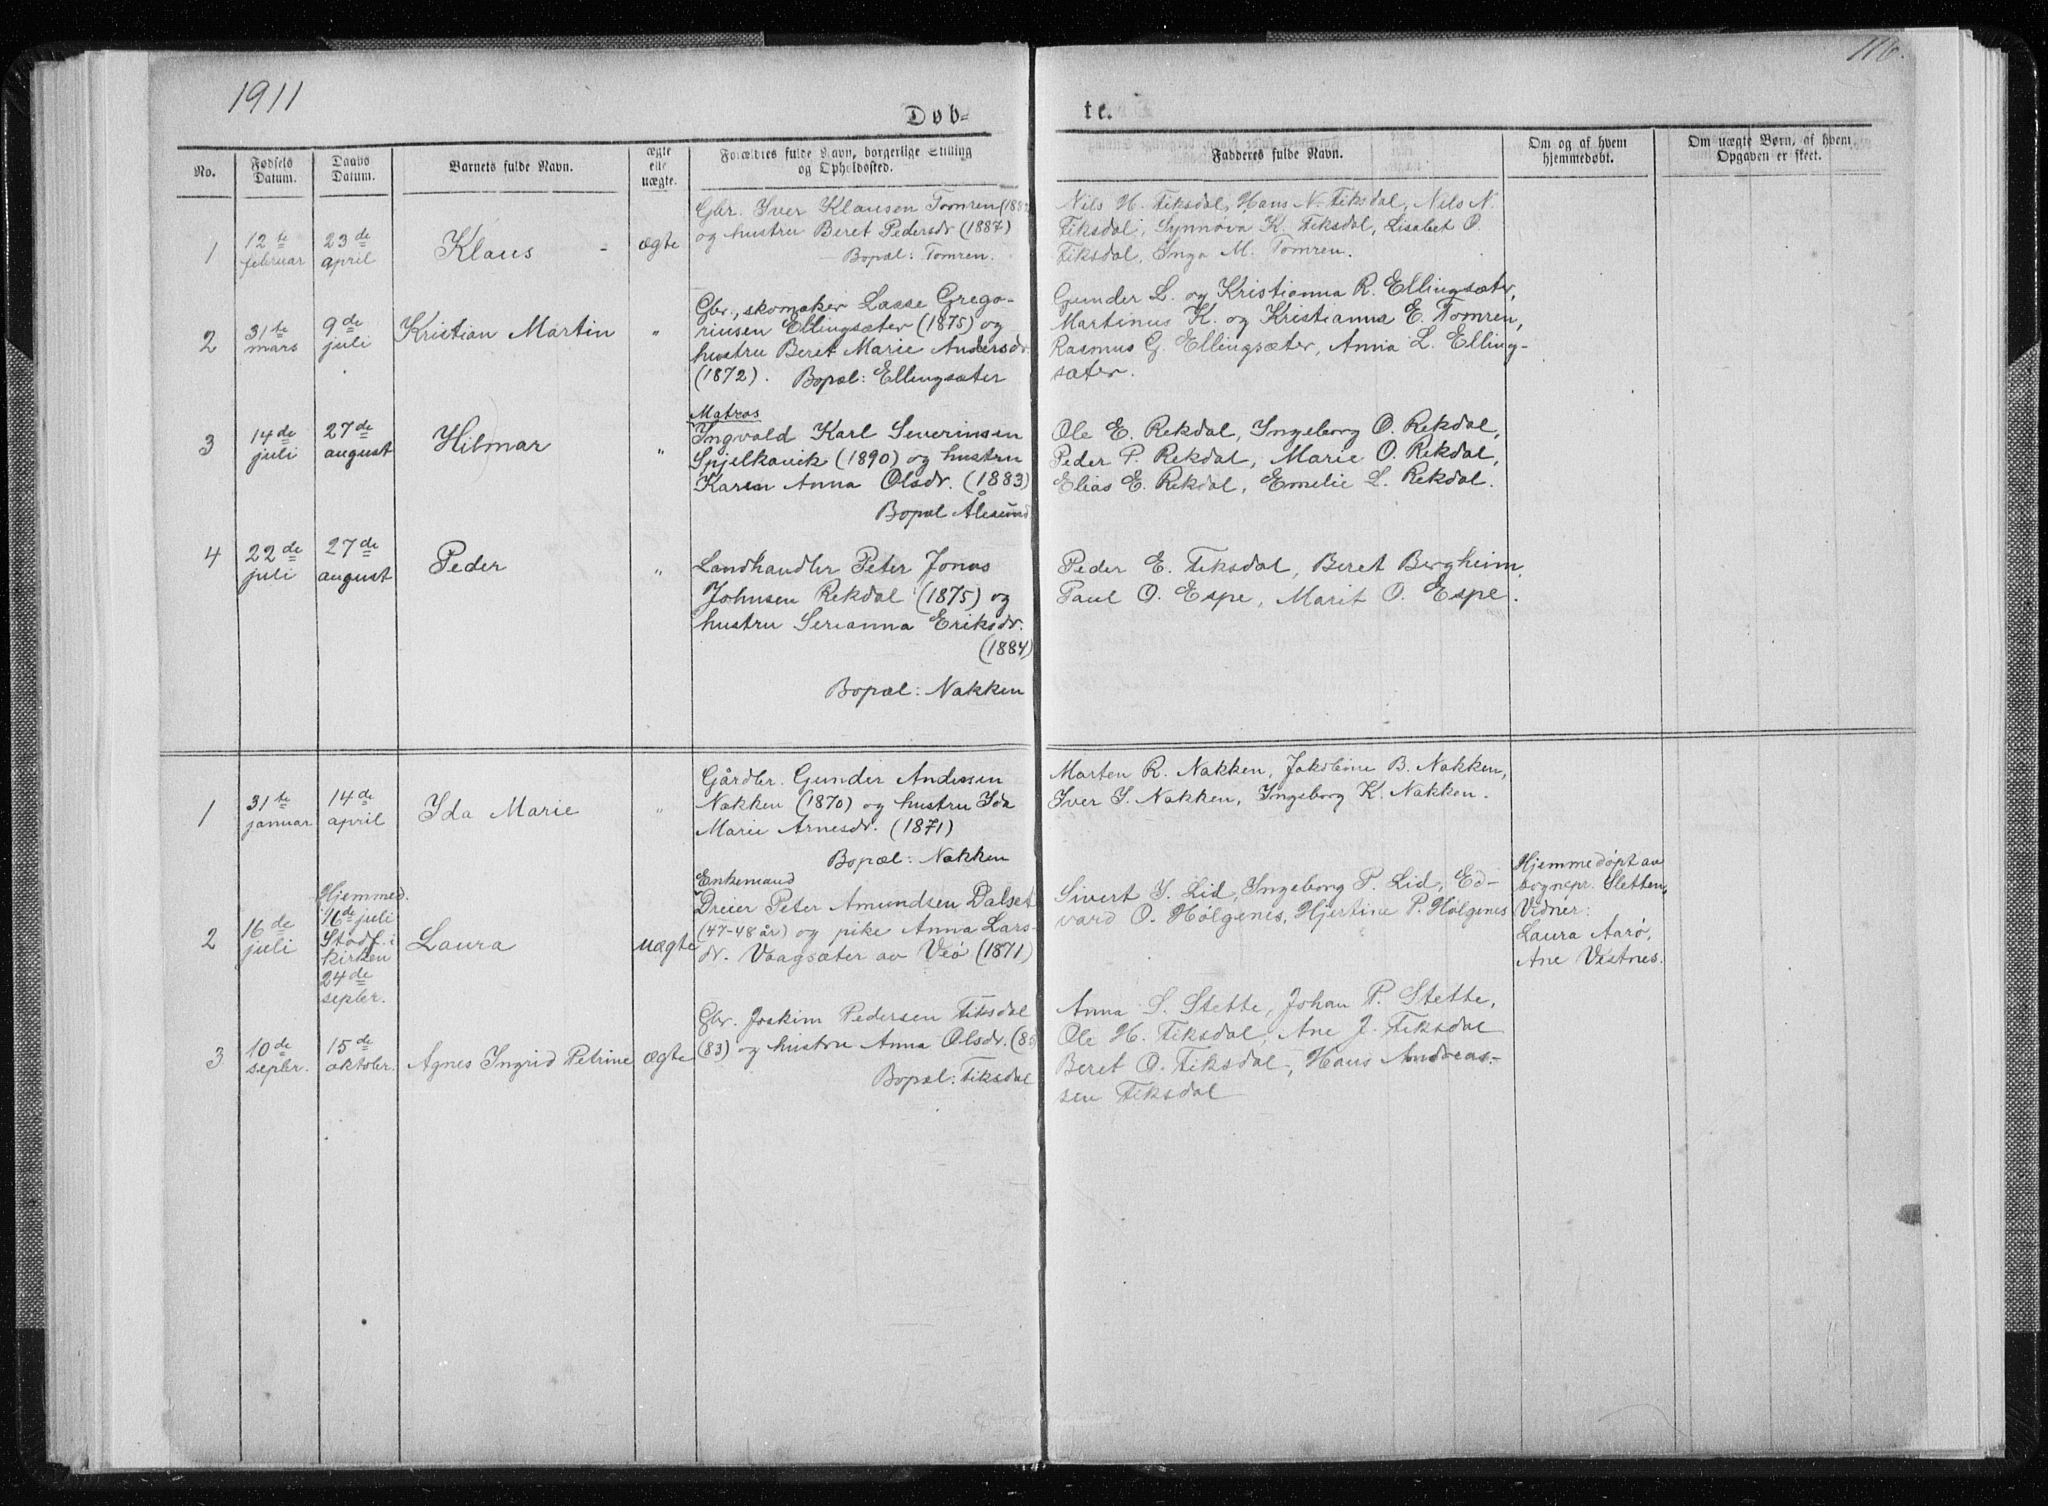 1911
110.
Døb-
te.
No.
Fødsels Datum.
Daabs Datum.
Barnets fulde Navn.
ægte elle uægte.
Forældres fulde Navn, borgerlige Stilling og Opholdssted.
Fadderes fulde Navn.
Om og af hvem hjemmedøbt.
Om uægte Børn, af hvem Opgaven er skeet.
1
12te februar
23de april
Klaus
ægte
Gbr. Iver Klausen Tomren (188
og hustru Beret Pedersdr (1887)
Bopæl: Tomren.
Nils H. Fiksdal, Hans N. Fiksdal, Nils N.
Fiksdal, Synnøva K. Fiksdal, Lisabet O.
Fiksdal, Inga M. Tomren.
2
31te mars
9de juli
Kristian Martin
"
Gbr., skomaker Lasse Grego-
riusen Ellingsæter (1875) og
hustru Beret Marie Andersdr.
(1872). Bopæl: Ellingsæter
Gunder L. og Kristianna R. Ellingsæter,
Martinus K. og Kristianna E. Tomren,
Rasmus G. Ellingsæter, Anna L. Elling-
sæter.
3
14de juli
27de august
Hilmar
"
Matros
Ingvald Karl Severinsen
Spjelkavik (1890) og hustru
Karen Anna Olsdr. (1883)
Bopæl Ålesund
Ole E. Rekdal, Ingeborg O. Rekdal,
Peder P. Rekdal, Marie O. Rekdal,
Elias E. Rekdal, Emelie L. Rekdal.
4
22de juli
27de august
Peder
"
Landhandler Peter Jonas
Johnsen Rekdal (1875) og
hustru Serianna Eriksdr.
(1884)
Bopæl: Nakken
Peder E. Fiksdal, Beret Bergheim,
Paul O. Espe, Marit O. Espe.
1
31te januar
14de april
Ida Marie
"
Gårdbr. Gunder Andersen
Nakken (1870) og hustru Ida
Marie Arnesdr. (1871)
Bopæl: Nakken
Marten R. Nakken, Jakobine B. Nakken,
Iver S. Nakken, Ingeborg K. Nakken.
2
16de juli
Hjemmed.
16de juli
Stadf. i
kirken
24de
septbr.
Laura
uægte
Enkemand
Dreier Peter Amundsen Dalset
(47-48 år) og pike Anna Lars-
dr. Vaagsæter av Veø (1871)
Sivert I. Lid, Ingeborg P. Lid, Ed-
vard O. Hølgenes, Hjertine P. Hølgenes
Hjemmedøpt av
sognepr. Sletten,
Vidner:
Laura Aarø,
Ane Vestnes.
3
10de septbr.
15de oktober.
Agnes Ingrid Petrine
ægte
Gbr. Joakim Pedersen Fiksdal
(83) og hustru Anna Olsdr. (8
Bopæl: Fiksdal
Anna S. Stette, Johan P. Stette,
Ole H. Fiksdal, Ane J. Fiksdal
Beret O. Fiksdal, Hans Andreas-
sen Fiksdal